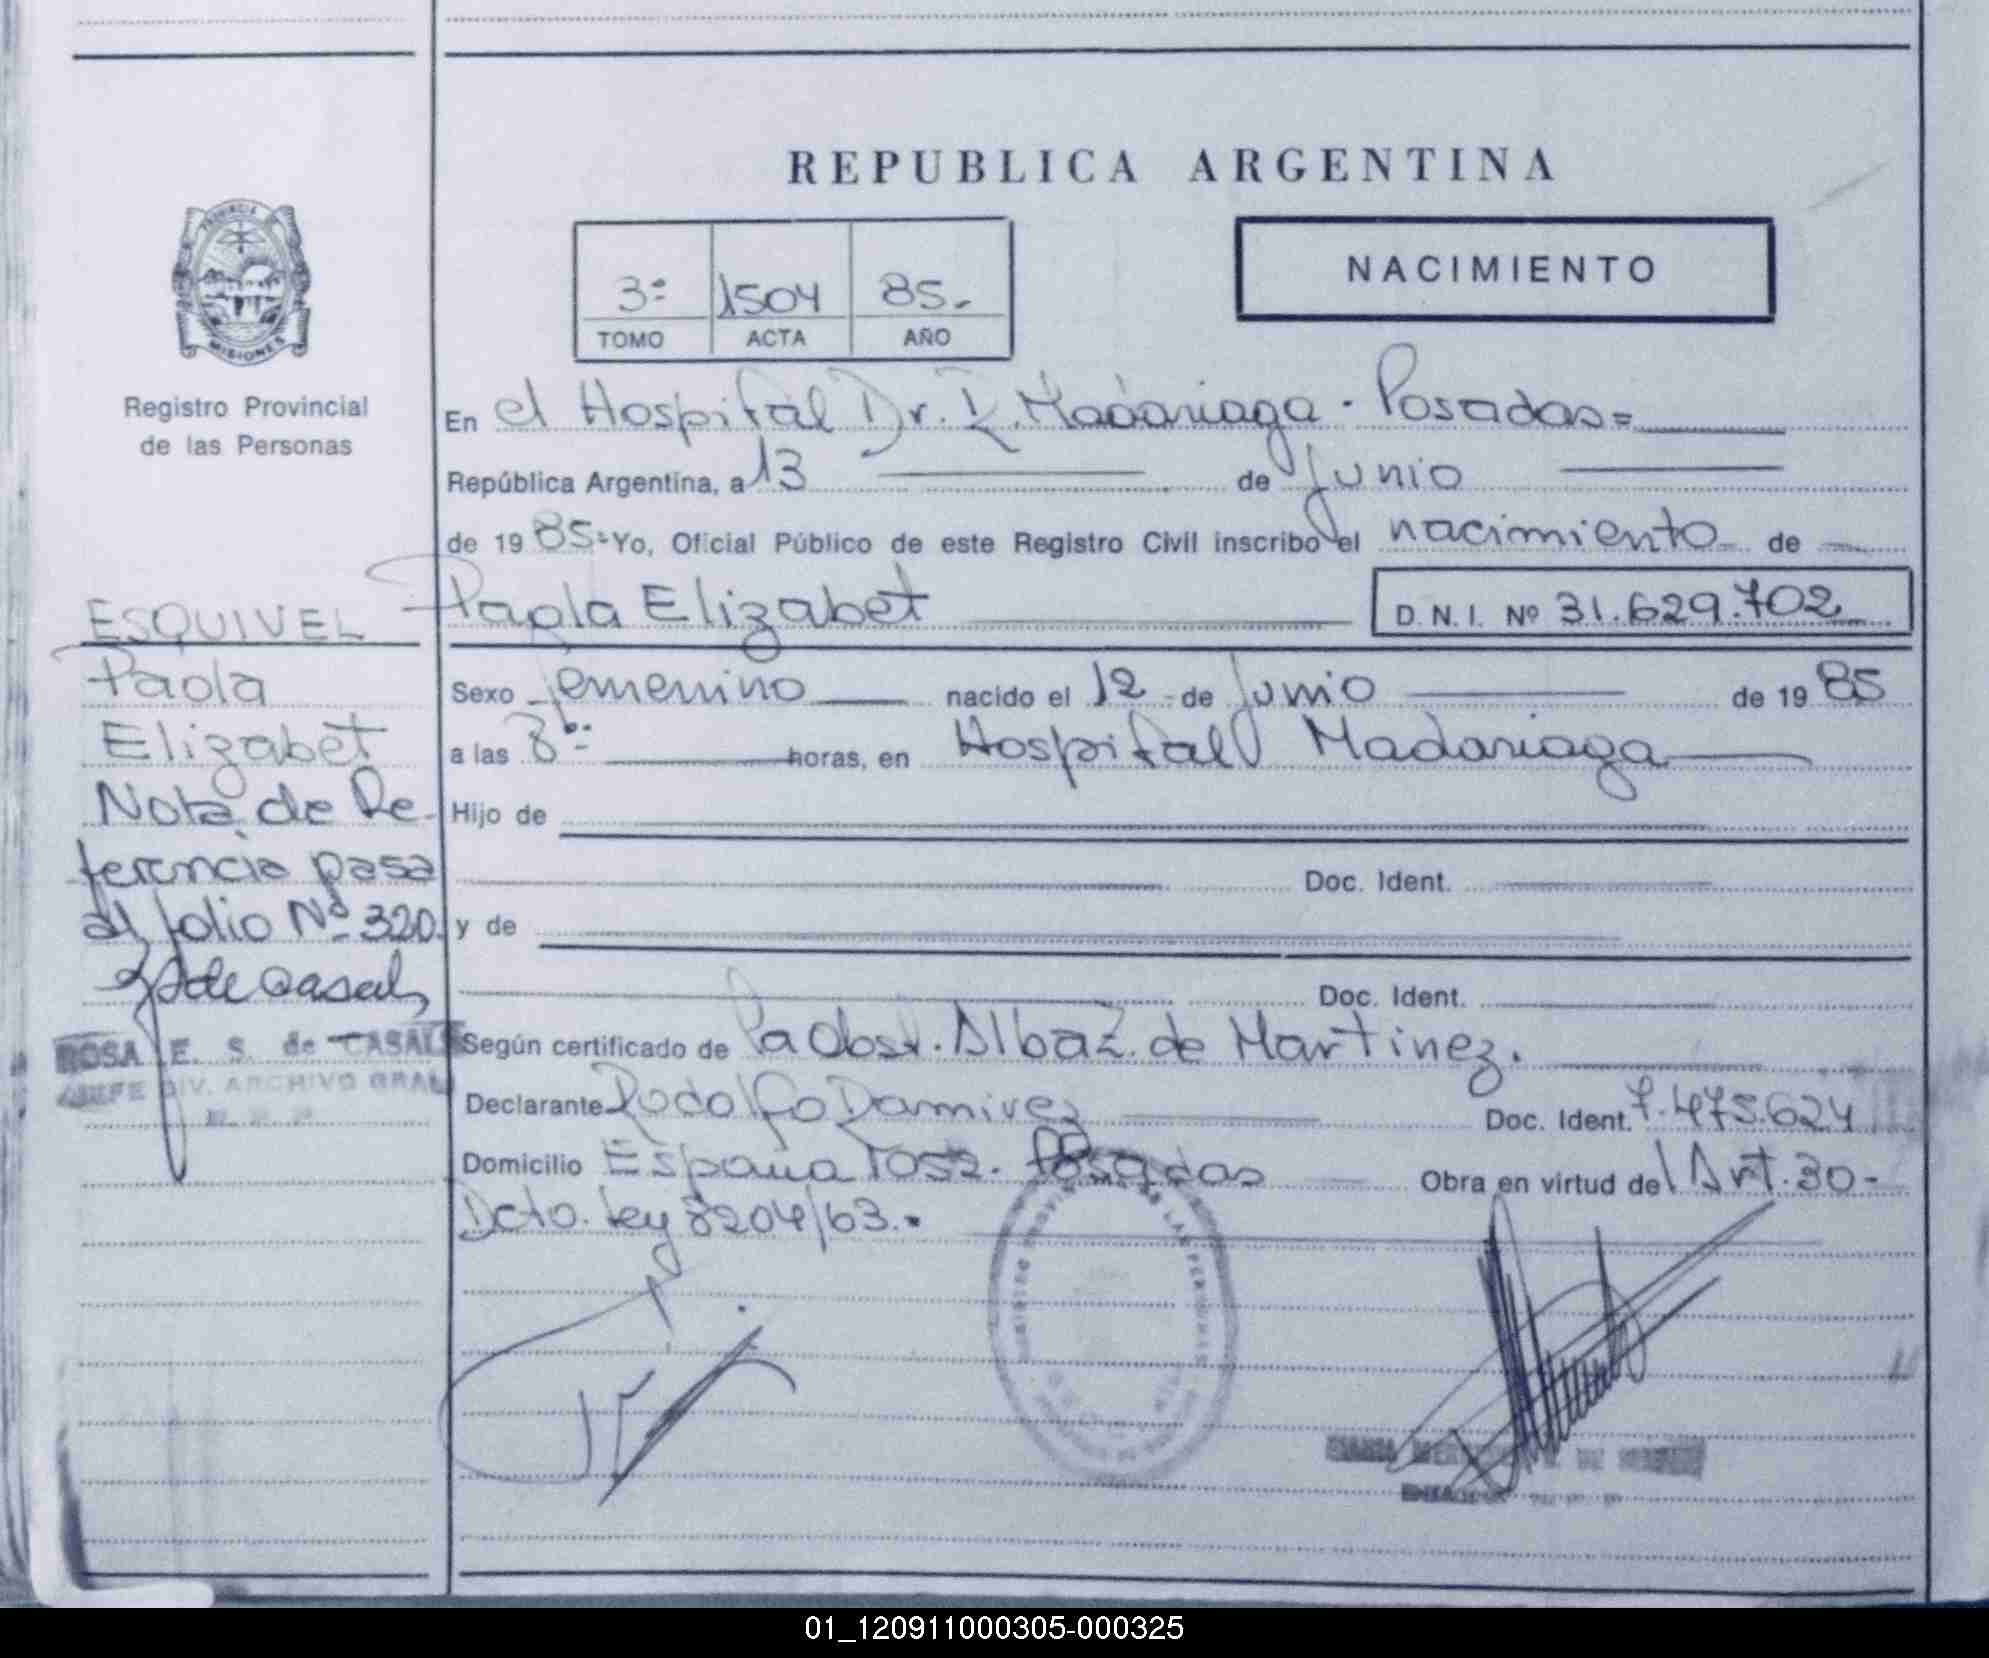 REPUBLICA ARGENTINA
NACIMIENTO
3º 1504 85.
TOMO ACTA AÑO
PROVINCIA
MISIONES
Registro Provincial
de las Personas
En el Hospital Dr. R. Madariaga - Posadas=
República Argentina, a 13 de Junio
de 19 85= Yo, Oficial Público de este Registro Civil inscribo el nacimiento de
Paola Elizabet D.N.I. Nº 31.629.702
ESQUIVEL
Paola
Elizabet
Nota de Re-
ferencia pasa
al folio Nº 320.
de Casals
ROSA E. S. de CASALS
JEFE DIV. ARCHIVO GRAL
Sexo femenino nacido el 12 de Junio de 19 85
a las 8 horas, en Hospital Madariaga
Hijo de
Doc. Ident.
y de
Doc. Ident.
Según certificado de la Obst. Alba Z. de Martinez.
Declarante Rodolfo Ramirez Doc. Ident. 7.475.624
Domicilio España Posadas Obra en virtud del Art. 30-
Dcto. Ley 8204/63.
01_120911000305-000325